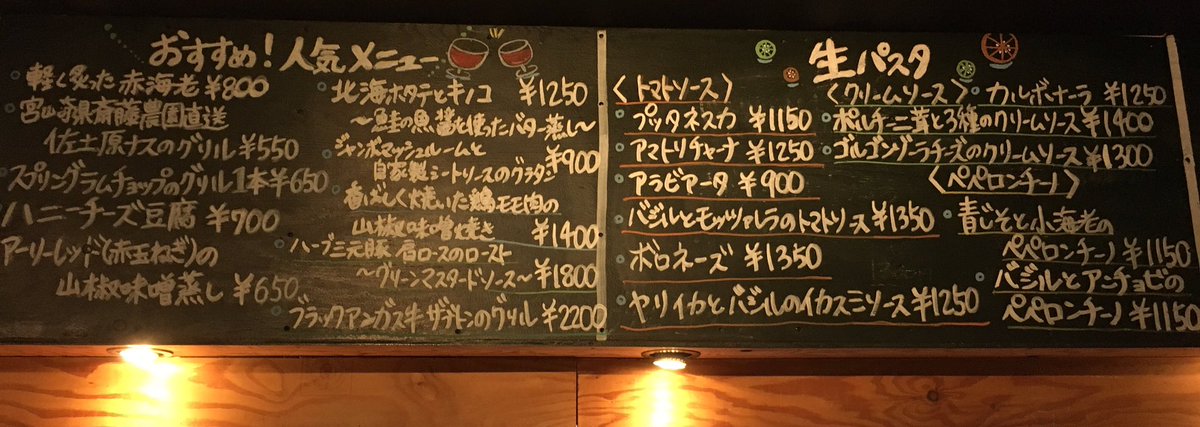 おすすめ！人気メニュー
軽く炙った赤海老 ¥800
宮崎県斎藤農園直送
佐土原ナスのグリル ¥550
スプリングラムチョップのグリル1本¥650
ハニーチーズ豆腐 ¥700
アーリーレッド(赤玉ねぎ)の
山椒味噌蒸し ¥650
北海ホタテとキノコ ¥1250
〜鮭の魚醤を使ったバター蒸し〜
ジャンボマッシュルームと ¥900
自家製ミートソースのグラタン
香ばしく焼いた鶏モモ肉の
山椒味噌焼き ¥1400
ハーブ三元豚 肩ロースのロースト
〜グリーンマスタードソース〜 ¥1800
ブラックアンガス牛ザブトンのグリル ¥2200
生パスタ
〈トマトソース〉
プッタネスカ ¥1150
アマトリチャーナ ¥1250
アラビアータ ¥900
バジルとモッツァレラのトマトソース ¥1350
ボロネーズ ¥1350
ヤリイカとバジルのイカスミソース ¥1250
〈クリームソース〉
カルボナーラ ¥1250
ポルチーニ茸と3種のクリームソース ¥1400
ゴルゴンゾラチーズのクリームソース ¥1300
〈ペペロンチーノ〉
青じそと小海老の
ペペロンチーノ ¥1150
バジルとアンチョビの
ペペロンチーノ ¥1150